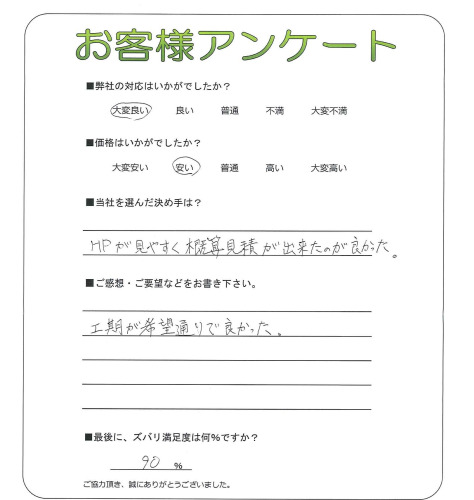 お客様アンケート
■弊社の対応はいかがでしたか？
大変良い 良い 普通 不満 大変不満
■価格はいかがでしたか？
大変安い 安い 普通 高い 大変高い
■当社を選んだ決め手は？
HPが見やすく概算見積が出来たのが良かった。
■ご感想・ご要望などをお書き下さい。
工期が希望通りで良かった。
■最後に、ズバリ満足度は何%ですか？
90 %
ご協力頂き、誠にありがとうございました。